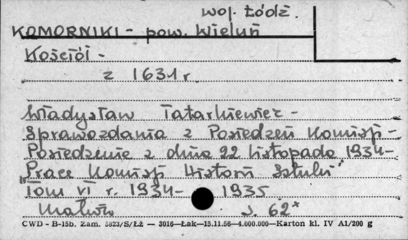 woj. Łódź.
KOMORNIKI - pow. Wieluń
Kościół -
z 1631 r.
Władysław Tatarkiewicz -
Sprawozdania z Posiedzeń Komisji -
Posiedzenie z dnia 22 listopada 1934 -
Prace Komisji Historii Sztuki"
Tom VI r. 1934 - 1935
s. 62*
CWD - B-15b. Zam. 5823/S/ŁZ — 3016—Łak—15.11.56—4.000.000—Karton kl. IV A1/200 g